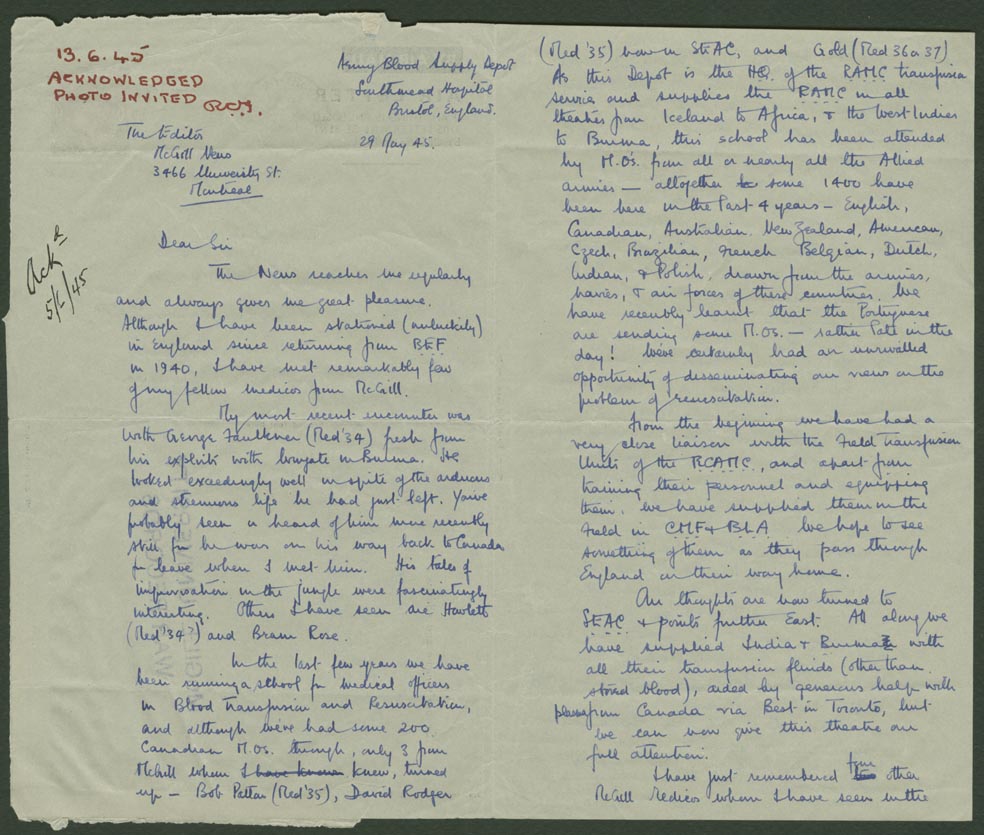 13.6.45
ACKNOWLEDGED
PHOTO INVITED
Army Blood Supply Depot
Southmead Hospital
Bristol, England.
29 May 45.
The Editor
McGill News
3466 University St.
Montreal
Ack d
5/6/45
Dear Sir
The News reaches me regularly
and always gives me great pleasure.
Although I have been stationed (unluckily)
in England since returning from BEF
in 1940, I have met remarkably few
of my fellow medicos from McGill.
My most recent encounter was
with George Faulkner (Med '34) fresh from
his exploits with Wingate in Burma. He
looked exceedingly well in spite of the arduous
and strenuous life he had just left. You've
probably seen or heard of him more recently
still for he was on his way back to Canada
for leave when I met him. His tales of
improvisation in the jungle were fascinatingly
interesting. Others I have seen are Howlett
(Med '34?) and Bram Rose.
In the last few years we have
been running a school for medical officers
in Blood Transfusion and Resuscitation,
and although we've had some 200
Canadian M.Os. through, only 3 from
McGill whom I have known knew, turned
up — Bob Patten (Med '35), David Rodger
(Med '35) now in SEAC, and Gold (Med 36 or 37)
As this Depot is the HQ. of the RAMC transfusion
service and supplies the RAMC in all
theatres from Iceland to Africa, & the West Indies
to Burma, this school has been attended
by M.O's. from all or nearly all the Allied
armies — altogether some 1400 have
been here in the last 4 years — English,
Canadian, Australian, New Zealand, American,
Czech, Brazilian, French, Belgian, Dutch,
Indian, & Polish, drawn from the armies,
navies, & air forces of these countries. We
have recently learnt that the Portuguese
are sending some M.Os. — rather late in the
day! We've certainly had an unrivalled
opportunity of disseminating our views on the
problem of resuscitation.
From the beginning we have had a
very close liaison with the Field transfusion
Units of the RCAMC, and apart from
training their personnel and equipping
them, we have supplied them in the
Field in CMF & BLA We hope to see
something of them as they pass through
England on their way home.
Our thoughts are now turned to
SEAC & points further East. All along we
have supplied India & Burma with
all their transfusion fluids (other than
stored blood), aided by generous help with
plasma from Canada via Best in Toronto, but
we can now give this theatre our
full attention.
I have just remembered four other
McGill Medicos whom I have seen in the